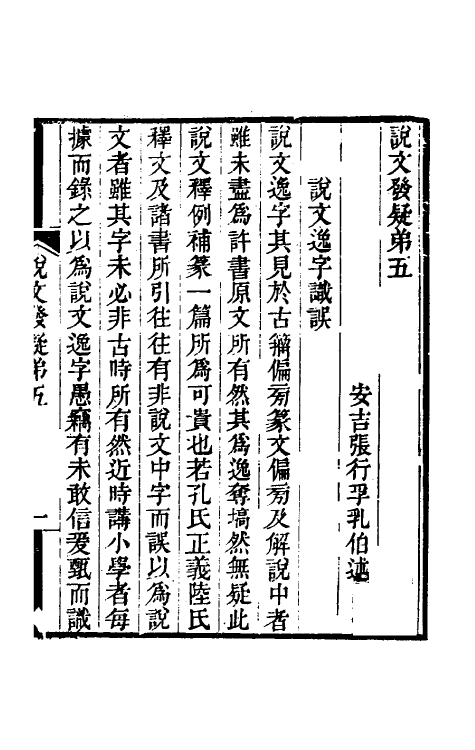 說文發疑弟五
安吉張行孚乳伯述
說文逸字識誤
說文逸字其見於古籒偏㫄篆文偏㫄及解說中者
雖未盡爲許書原文所有然其爲逸奪塙然無疑此
說文釋例補篆一篇所爲可貴也若孔氏正義陸氏
釋文及諸書所引往往有非說文中字而誤以爲說
文者雖其字未必非古時所有然近時講小學者每
據而錄之以爲說文逸字愚竊有未敢信爰甄而識
說文發疑弟五
一